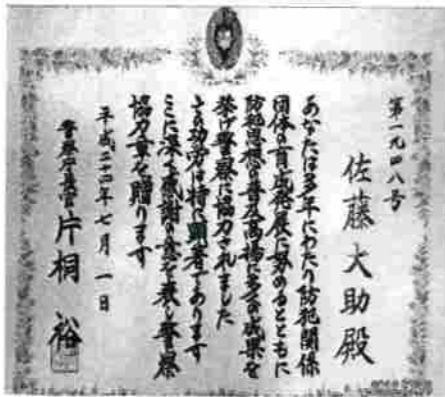 第一九四八号
佐藤大助殿
あなたは多年にわたり防犯関係
団体の育成発展に努めるとともに
防犯思想の普及高揚に多大の成果を
挙げ警察に協力されました
その功労は特に顕著であります
ここに深く感謝の意を表し警察
協力章を贈ります
平成二十四年七月一日
警察庁長官 片桐裕